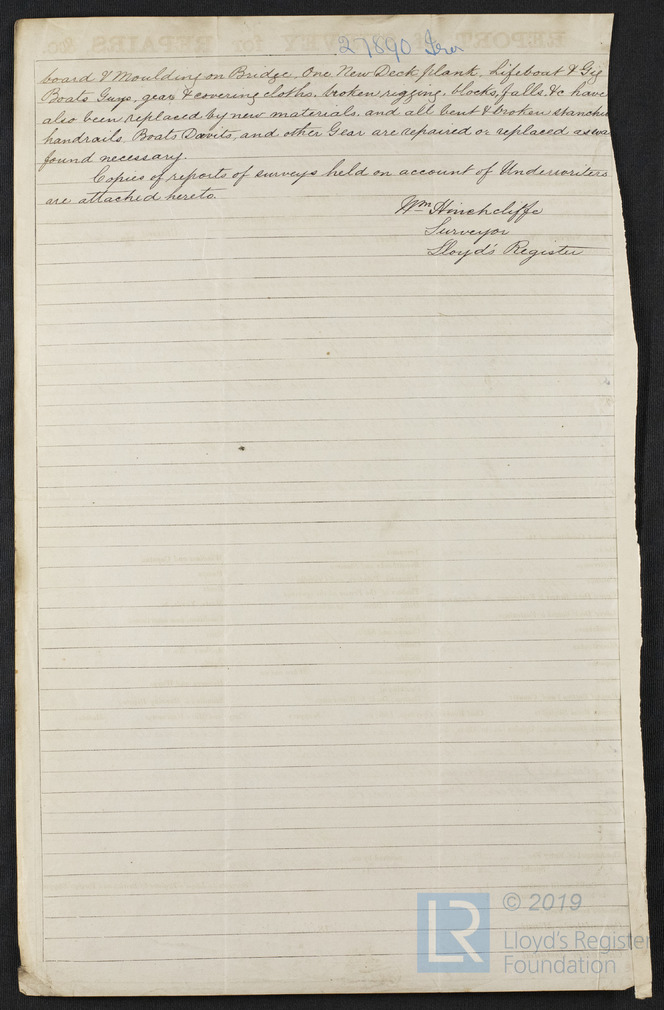 27890 Iron
board & Moulding on Bridge. One New Deck plank. Lifeboat & Gig
Boats Guys, gear & covering cloths, broken rigging, blocks, falls &c have
also been replaced by new materials, and all bent & broken stanchio
handrails, Boats Davits, and other Gear are repaired or replaced as wa
found necessary.
Copies of reports of surveys held on account of Underwriters
are attached hereto.
Wm Hinchcliffe
Surveyor
Lloyd's Register
LR
© 2019
Lloyd's Register
Foundation